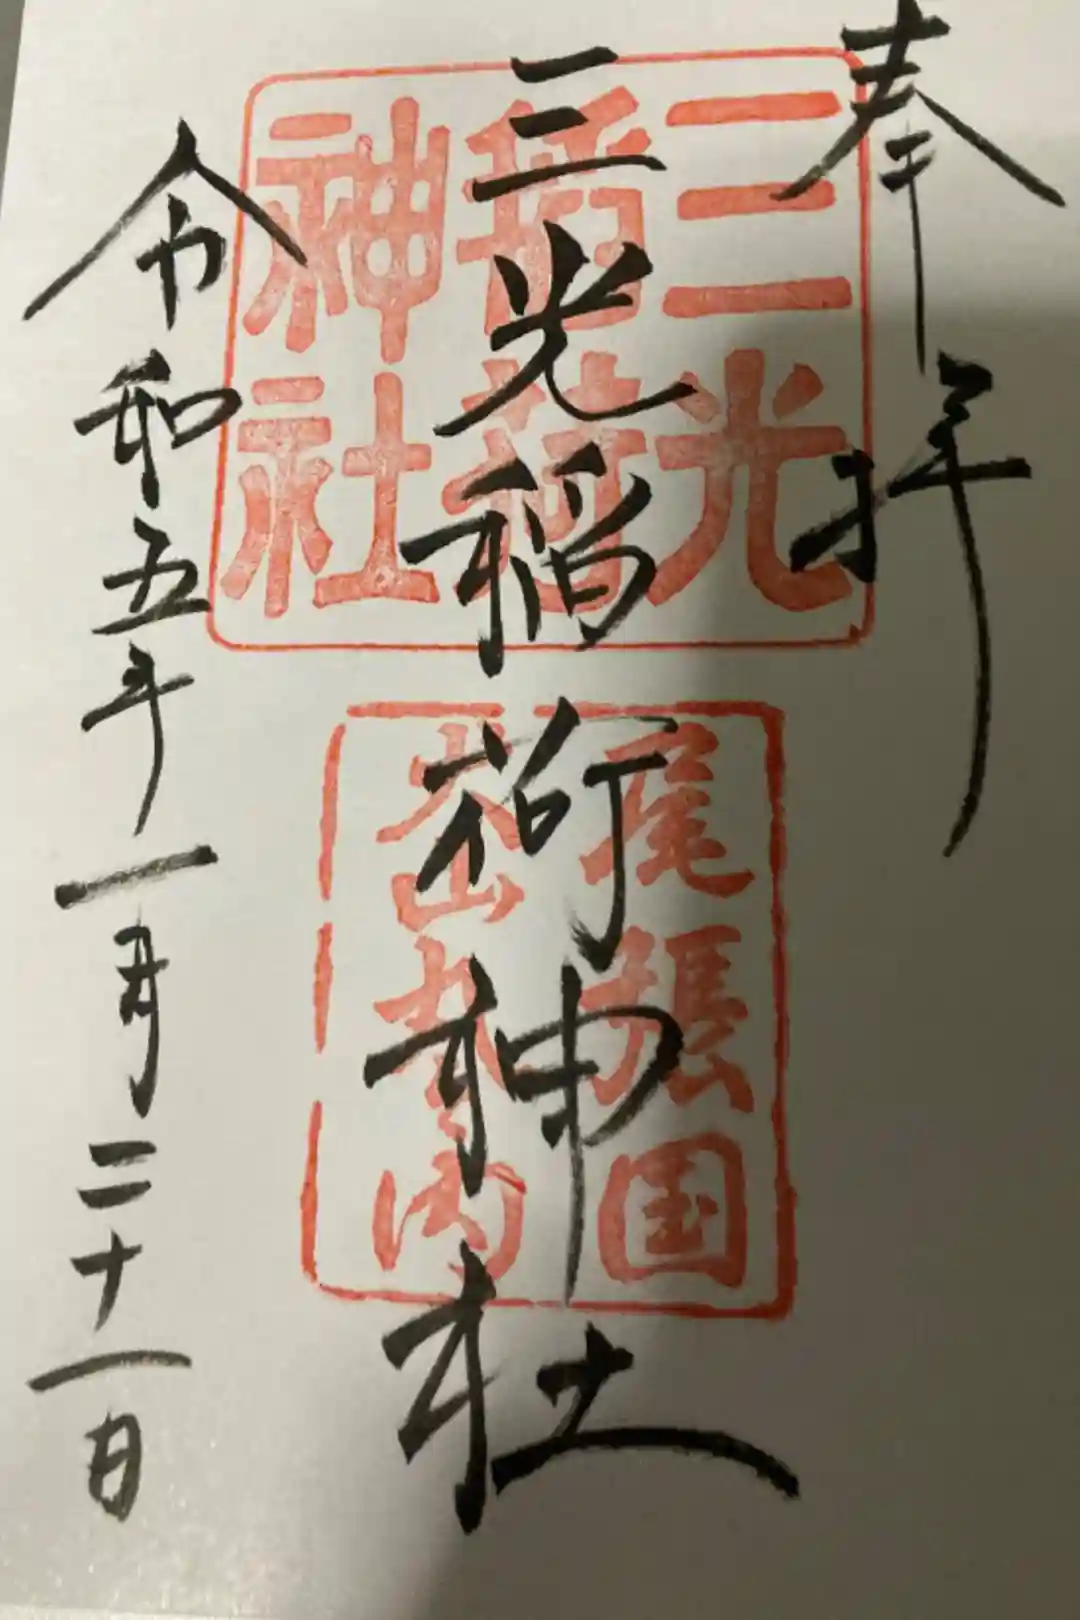 奉拝
三光
稲荷
神社
三光稲荷神社
尾張国
犬山丸内
令和五年一月二十一日